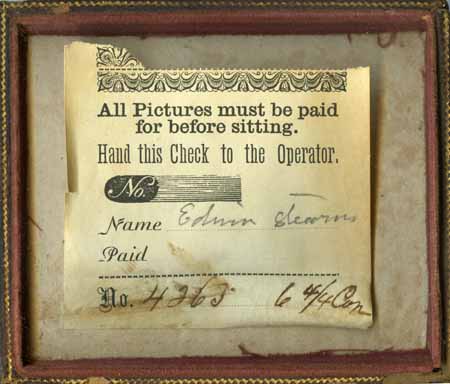 All Pictures must be paid
for before sitting.
Hand this Check to the Operator.
No.
Name Edwin Stearns
Paid
No. 4263 6 4/4 Con